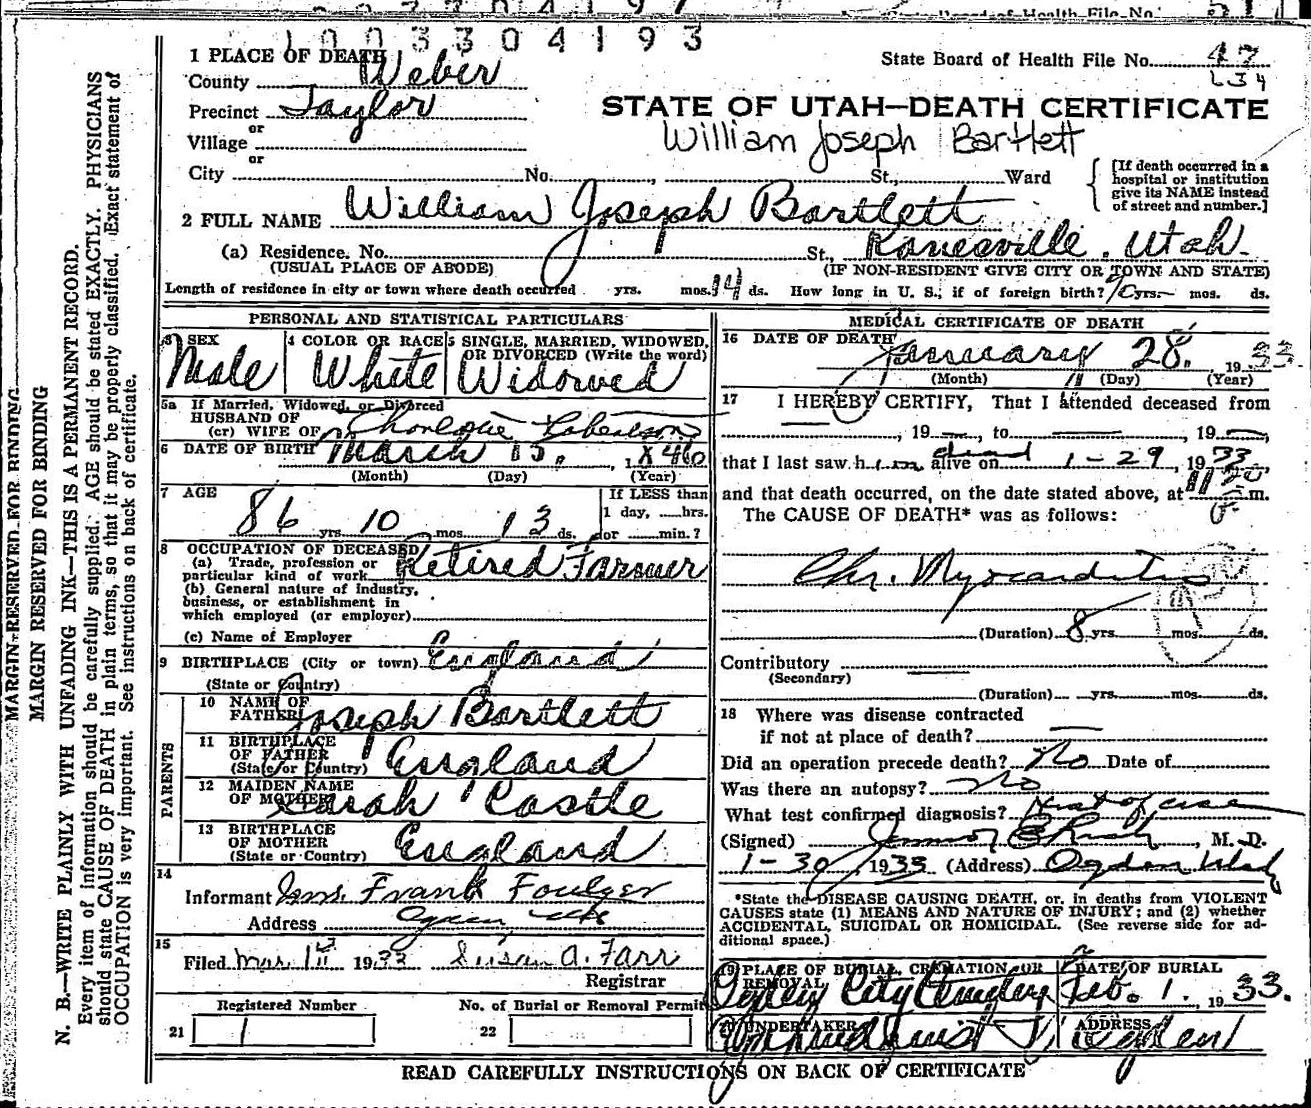 State Board of Health File No. 51
1003304193
1 PLACE OF DEATH
State Board of Health File No. 47
L34
County Weber
Precinct Taylor
or
Village
or
City No. , St., Ward
STATE OF UTAH—DEATH CERTIFICATE
William Joseph Bartlett
[If death occurred in a
hospital or institution
give its NAME instead
of street and number.]
2 FULL NAME William Joseph Bartlett
(a) Residence. No. St., Kanesville. Utah.
(USUAL PLACE OF ABODE) (IF NON-RESIDENT GIVE CITY OR TOWN AND STATE)
Length of residence in city or town where death occurred yrs. mos. 14 ds. How long in U. S., if of foreign birth? 70 yrs. mos. ds.
PERSONAL AND STATISTICAL PARTICULARS
3 SEX 4 COLOR OR RACE 5 SINGLE, MARRIED, WIDOWED,
OR DIVORCED (Write the word)
Male White Widowed
5a If Married, Widowed, or Divorced
HUSBAND OF
(or) WIFE OF Robertson
6 DATE OF BIRTH March 15, 1846
(Month) (Day) (Year)
7 AGE If LESS than
86 yrs 10 mos. 13 ds. 1 day, hrs.
or min.?
8 OCCUPATION OF DECEASED
(a) Trade, profession or
particular kind of work Retired Farmer
(b) General nature of industry,
business, or establishment in
which employed (or employer)
(c) Name of Employer
9 BIRTHPLACE (City or town) England
(State or Country)
PARENTS
10 NAME OF
FATHER Joseph Bartlett
11 BIRTHPLACE
OF FATHER
(State or Country) England
12 MAIDEN NAME
OF MOTHER Sarah Castle
13 BIRTHPLACE
OF MOTHER
(State or Country) England
14
Informant Mrs. Frank Foulger
Address Ogden Utah
15
Filed Mar. 1st 1933 Susan A. Farr
Registrar
Registered Number No. of Burial or Removal Permit
21 1 22
MEDICAL CERTIFICATE OF DEATH
16 DATE OF DEATH
January 28. 1933.
(Month) (Day) (Year)
17 I HEREBY CERTIFY, That I attended deceased from
, 19 — , to — , 19 — ,
that I last saw him dead alive on 1-29, 1933,
and that death occurred, on the date stated above, at 11 20 P. m.
The CAUSE OF DEATH* was as follows:
Chr. Myocarditis
(Duration) 8 yrs. mos. ds.
Contributory —
(Secondary)
(Duration) yrs. mos. ds.
18 Where was disease contracted
if not at place of death? —
Did an operation precede death? No Date of
Was there an autopsy? No
What test confirmed diagnosis? Hist of case
(Signed) , M. D.
1-30 1933 (Address) Ogden, Utah
*State the DISEASE CAUSING DEATH, or, in deaths from VIOLENT
CAUSES state (1) MEANS AND NATURE OF INJURY; and (2) whether
ACCIDENTAL, SUICIDAL OR HOMICIDAL. (See reverse side for ad-
ditional space.)
19 PLACE OF BURIAL, CREMATION OR
REMOVAL DATE OF BURIAL
Ogden City Cemetery Feb. 1. 1933.
20 UNDERTAKER ADDRESS
Ogden
READ CAREFULLY INSTRUCTIONS ON BACK OF CERTIFICATE
MARGIN RESERVED FOR BINDING
MARGIN RESERVED FOR BINDING
N. B.—WRITE PLAINLY WITH UNFADING INK—THIS IS A PERMANENT RECORD.
Every item of information should be carefully supplied. AGE should be stated EXACTLY. PHYSICIANS
should state CAUSE OF DEATH in plain terms, so that it may be properly classified. Exact statement of
OCCUPATION is very important. See instructions on back of certificate.